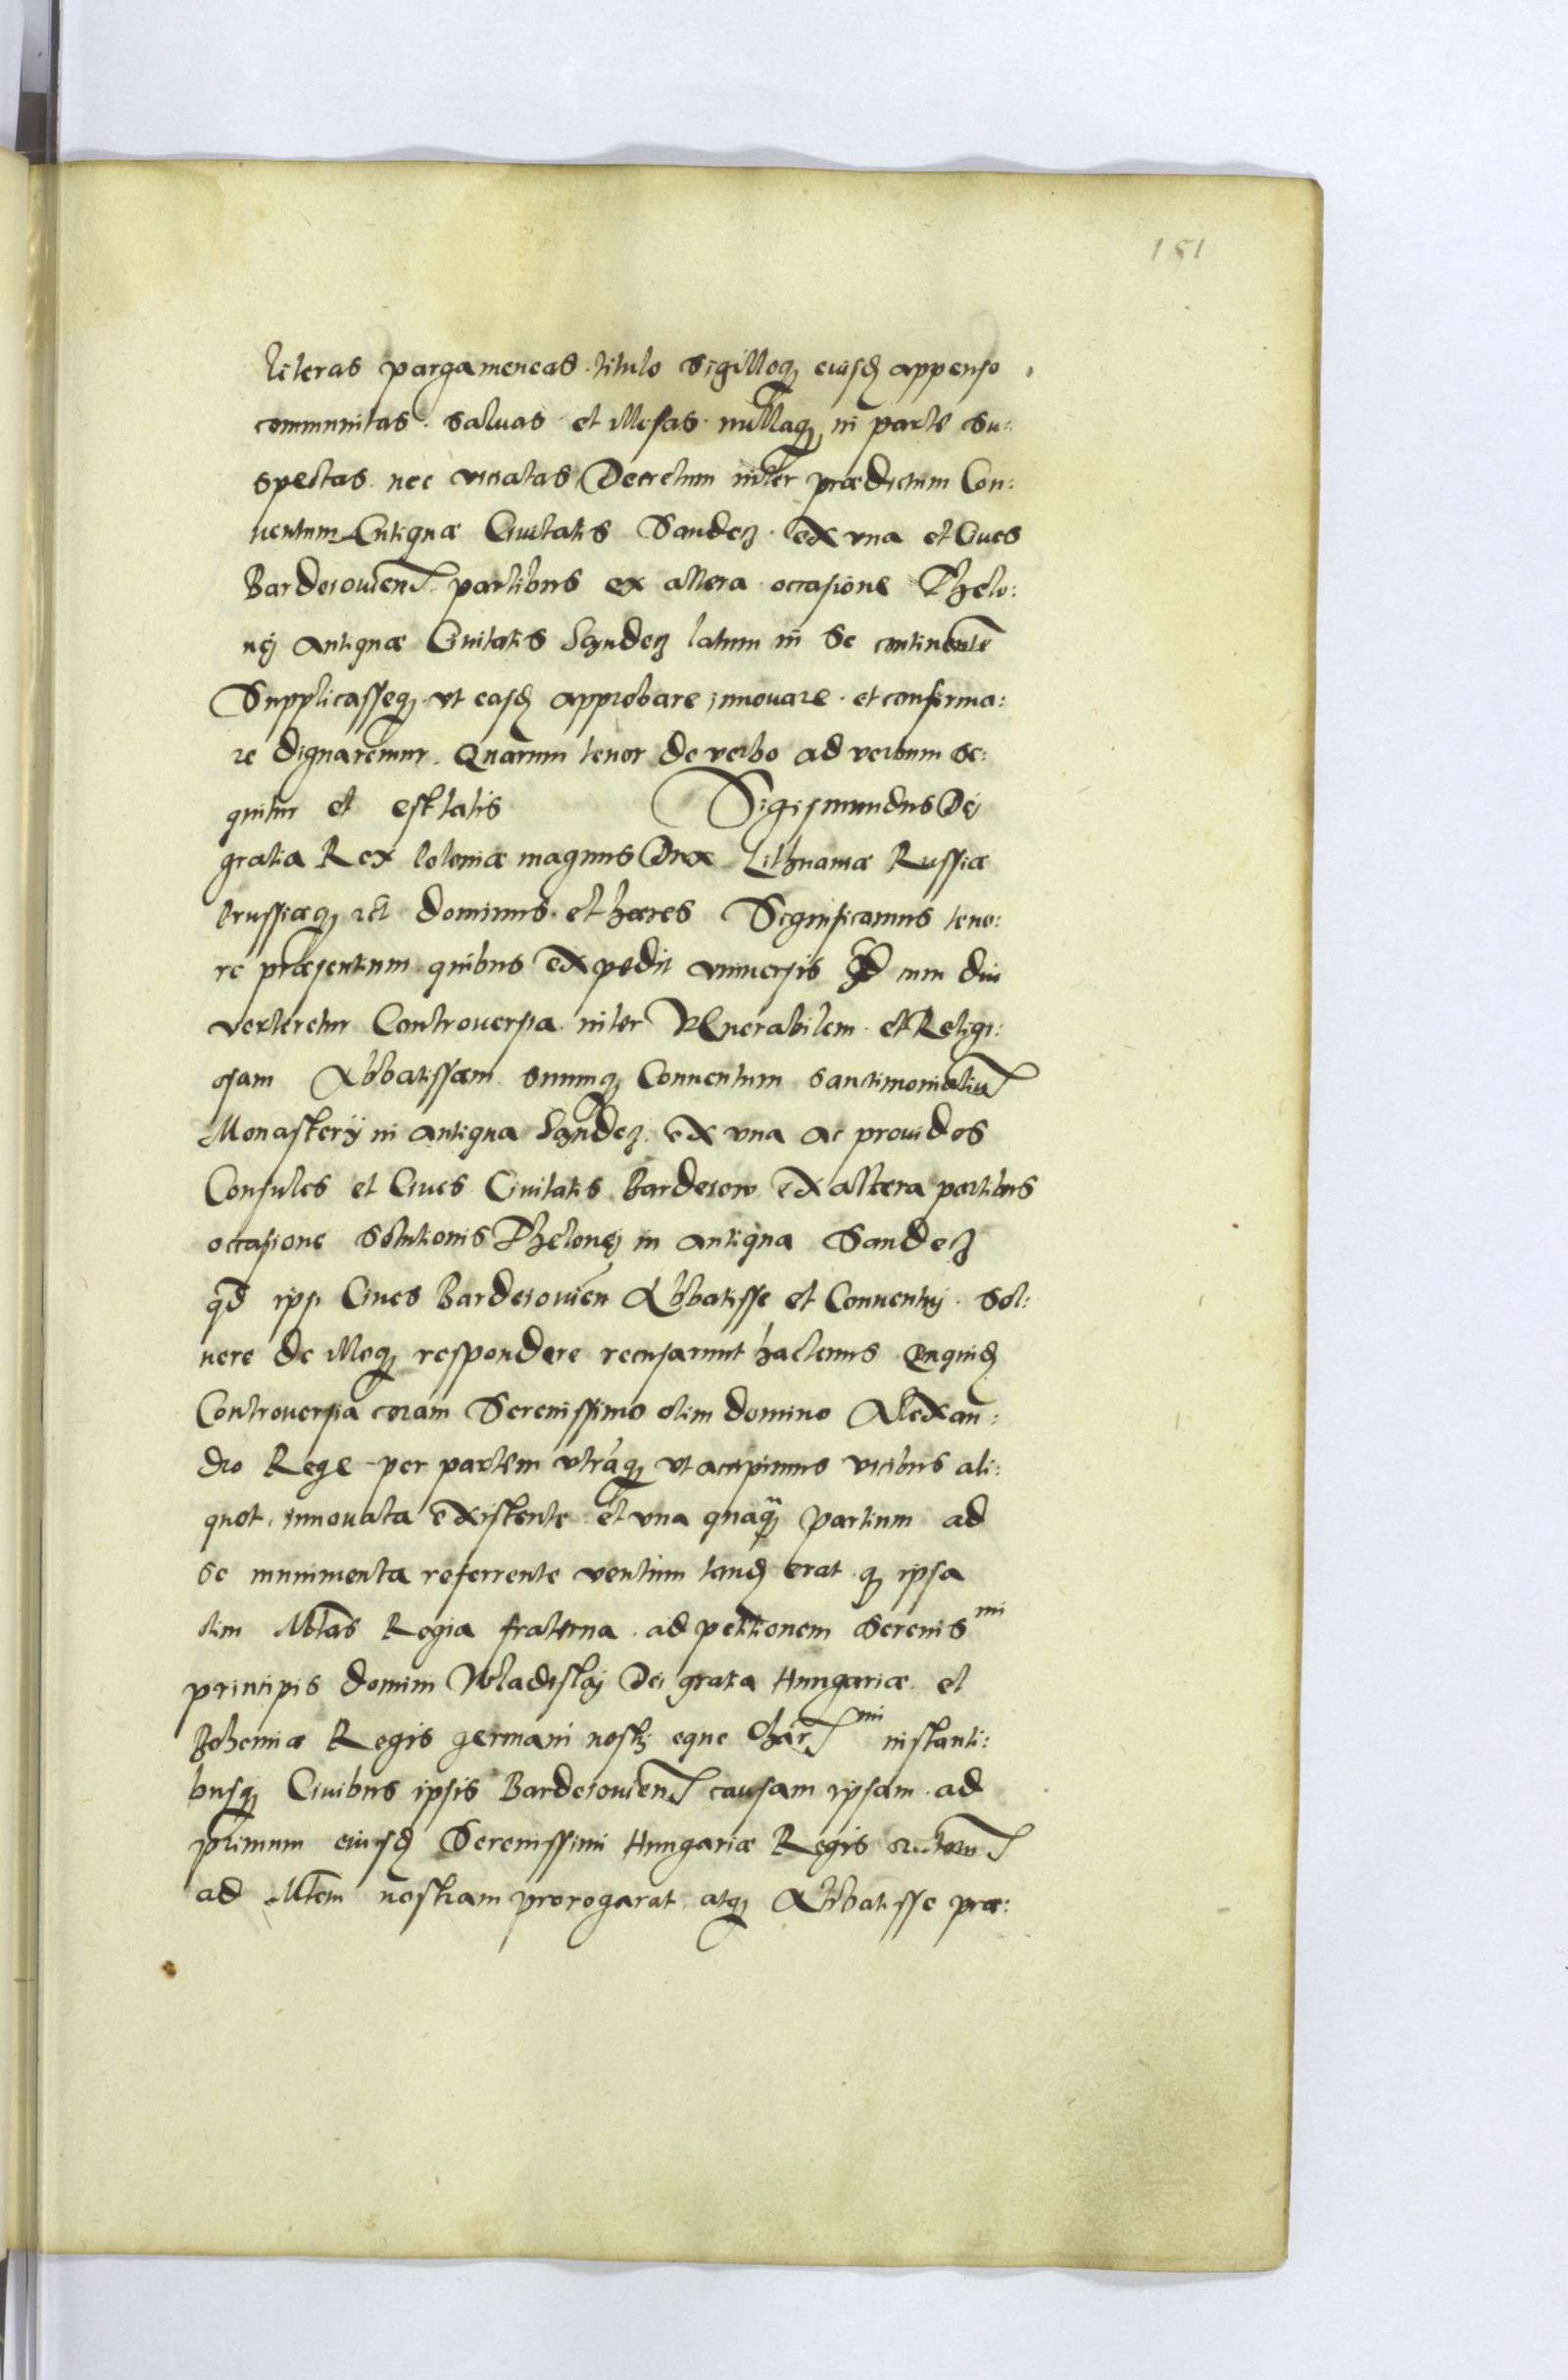 151
literas pargameneas titulo sigilloq₃ eiusd appenso
communitas saluas et illesas nullaq₃ in parte su:
spectas nec viciatas Decretum inter prædictum Con:
uentum Antiquæ Ciuitatis Sandecz ex vna et Ciues
Bardeiouien̄ partibus ex altera occasione Thelo:
nej Antiquæ Ciuitatis Sandecz latum in se continente
Supplicasseq₃ vt easd approbare innouare et confirma:
re dignaremur. Quarum tenor de verbo ad verbum se:
quitur et est talis Sigismundus Dei
gratia Rex Poloniæ magnus Dux Lithuaniæ Russiæ
Prussiæq₃ etc dominus et hæres Significamus teno:
re præsentium quibus expedit vniuersis Qd cum diu
verteretur Controuersia inter Venerabilem et Religi:
osam Abbatissam suumq₃ Conuentum sanctimonialiū
Monasterij in antiqua Sandecz ex vna ac prouidos
Consules et Ciues Ciuitatis Bardeiow ex altera partibus
occasione solutionis Thelonej in antiqua Sandecz
qd ipsi Ciues Bardeiouien̄ Abbatisse et Conuentuj sol:
uere de illoq₃ respondere recusarunt hactenus Quaquid
Controuersia coram Serenissimo olim domino Alexan:
dro Rege per partem vtráq₃ vt accepimus vicibus ali:
quot innouata existente et vna quaq₃ partium ad
se munimenta referrente ventum tand erat q₃ ipsa
olim Mtas Regia fraterna ad petitionem Serenis mi
principis domini Wladislaj Dei gratia Hungariæ et
Bohemiæ Regis germani nostri eque Char mi instanti:
busq₃ Ciuibus ipsis Bardeiouien̄ causam ipsam ad
plimum eiusd Serenissimi Hungariæ Regis
ad Mtem nostram prorogarat atq₃ Abbatisse præ: